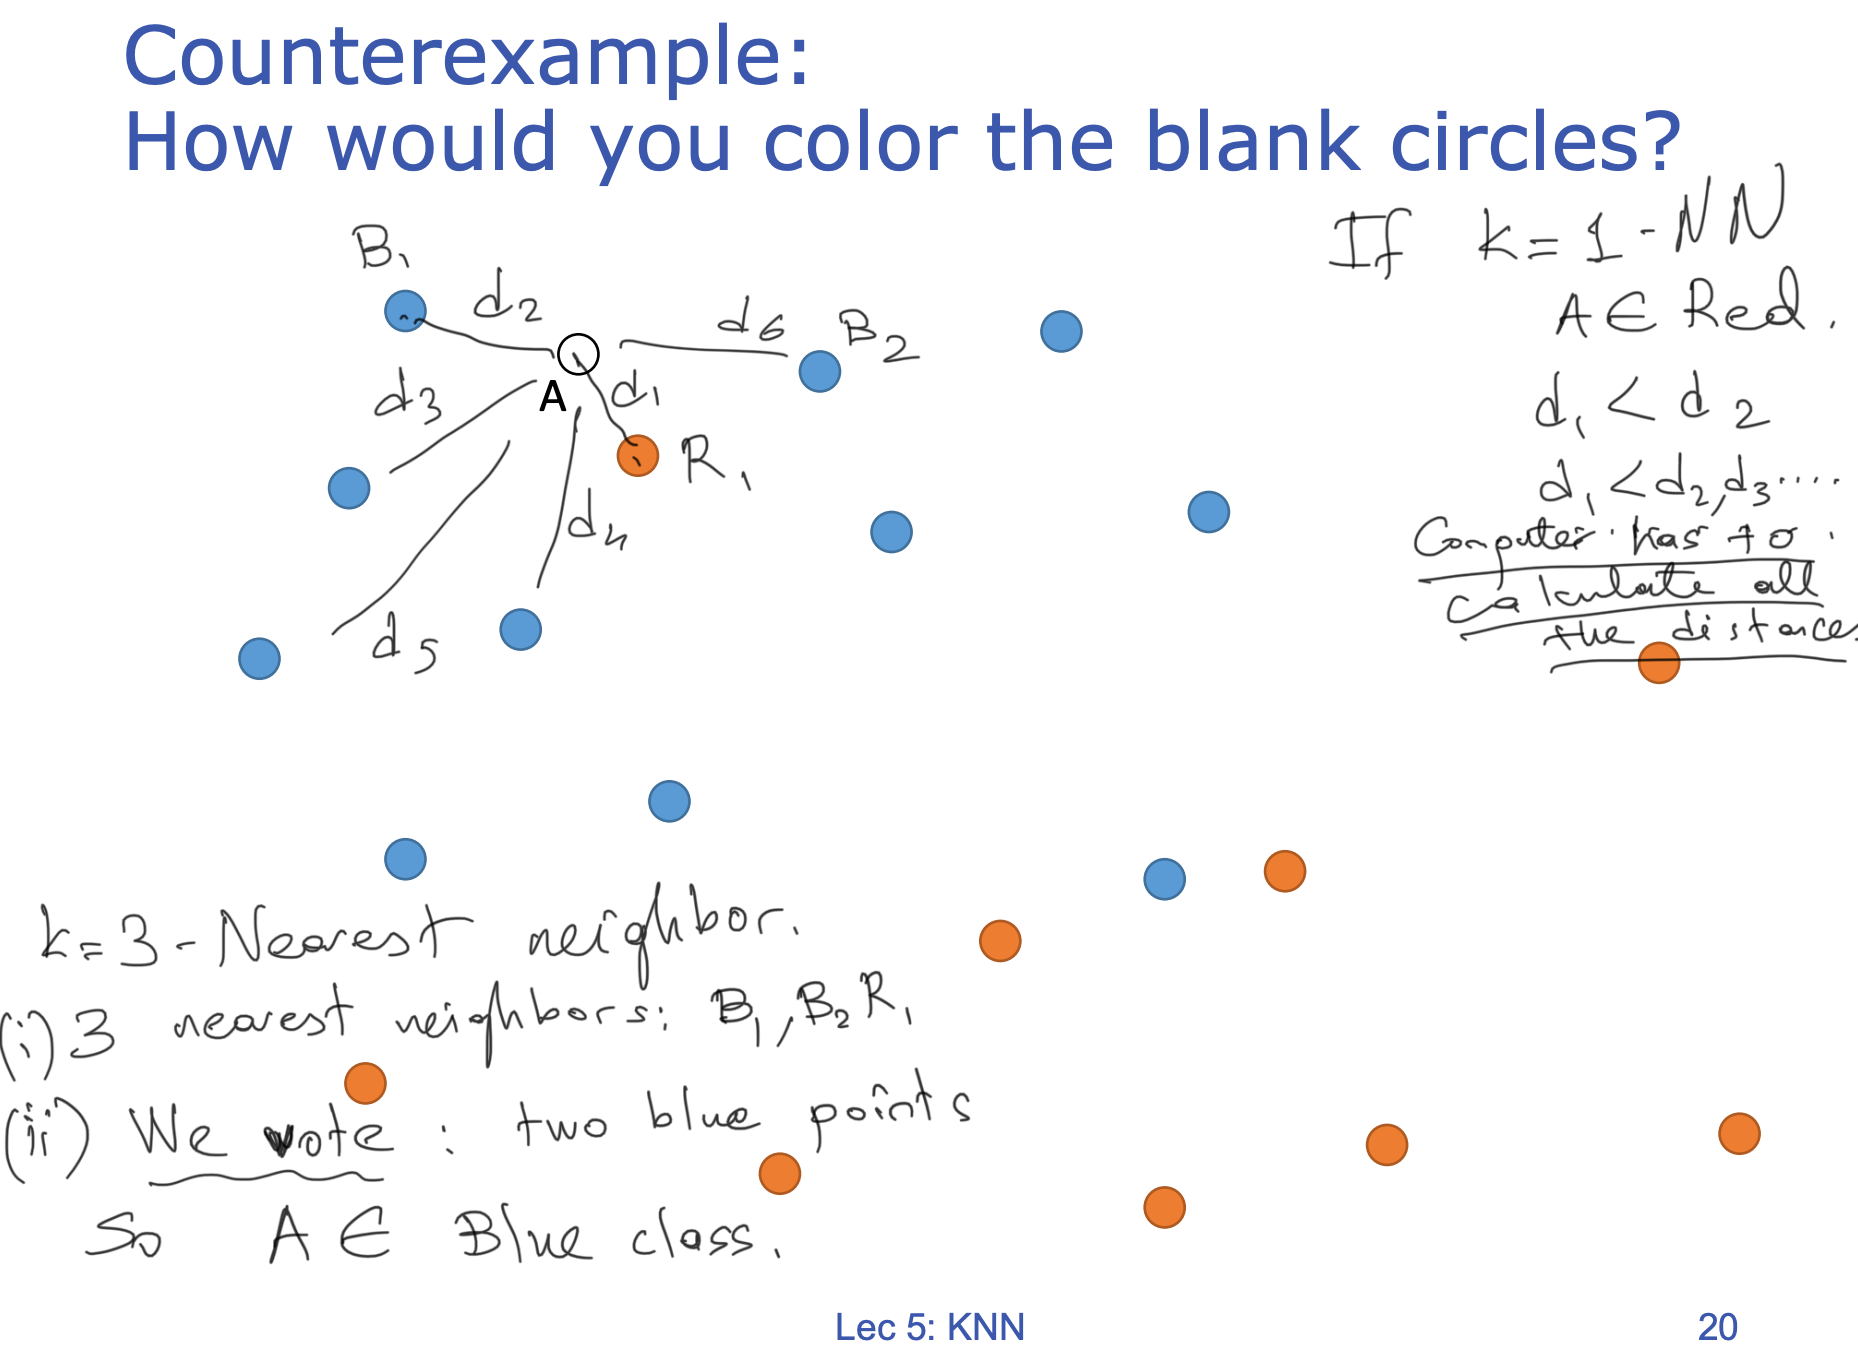 Counterexample:
How would you color the blank circles?
If k=1-NN
A∈Red.
d₁ < d₂
d₁ < d₂, d₃....
Computer has to
calculate all
the distances
B₁
d₂
d₆ B₂
d₃
A
d₁
R₁
d₄
d₅
k=3-Nearest neighbor.
(i) 3 nearest neighbors: B₁, B₂ R₁
(ii) We vote : two blue points
So A ∈ Blue class.
Lec 5: KNN
20